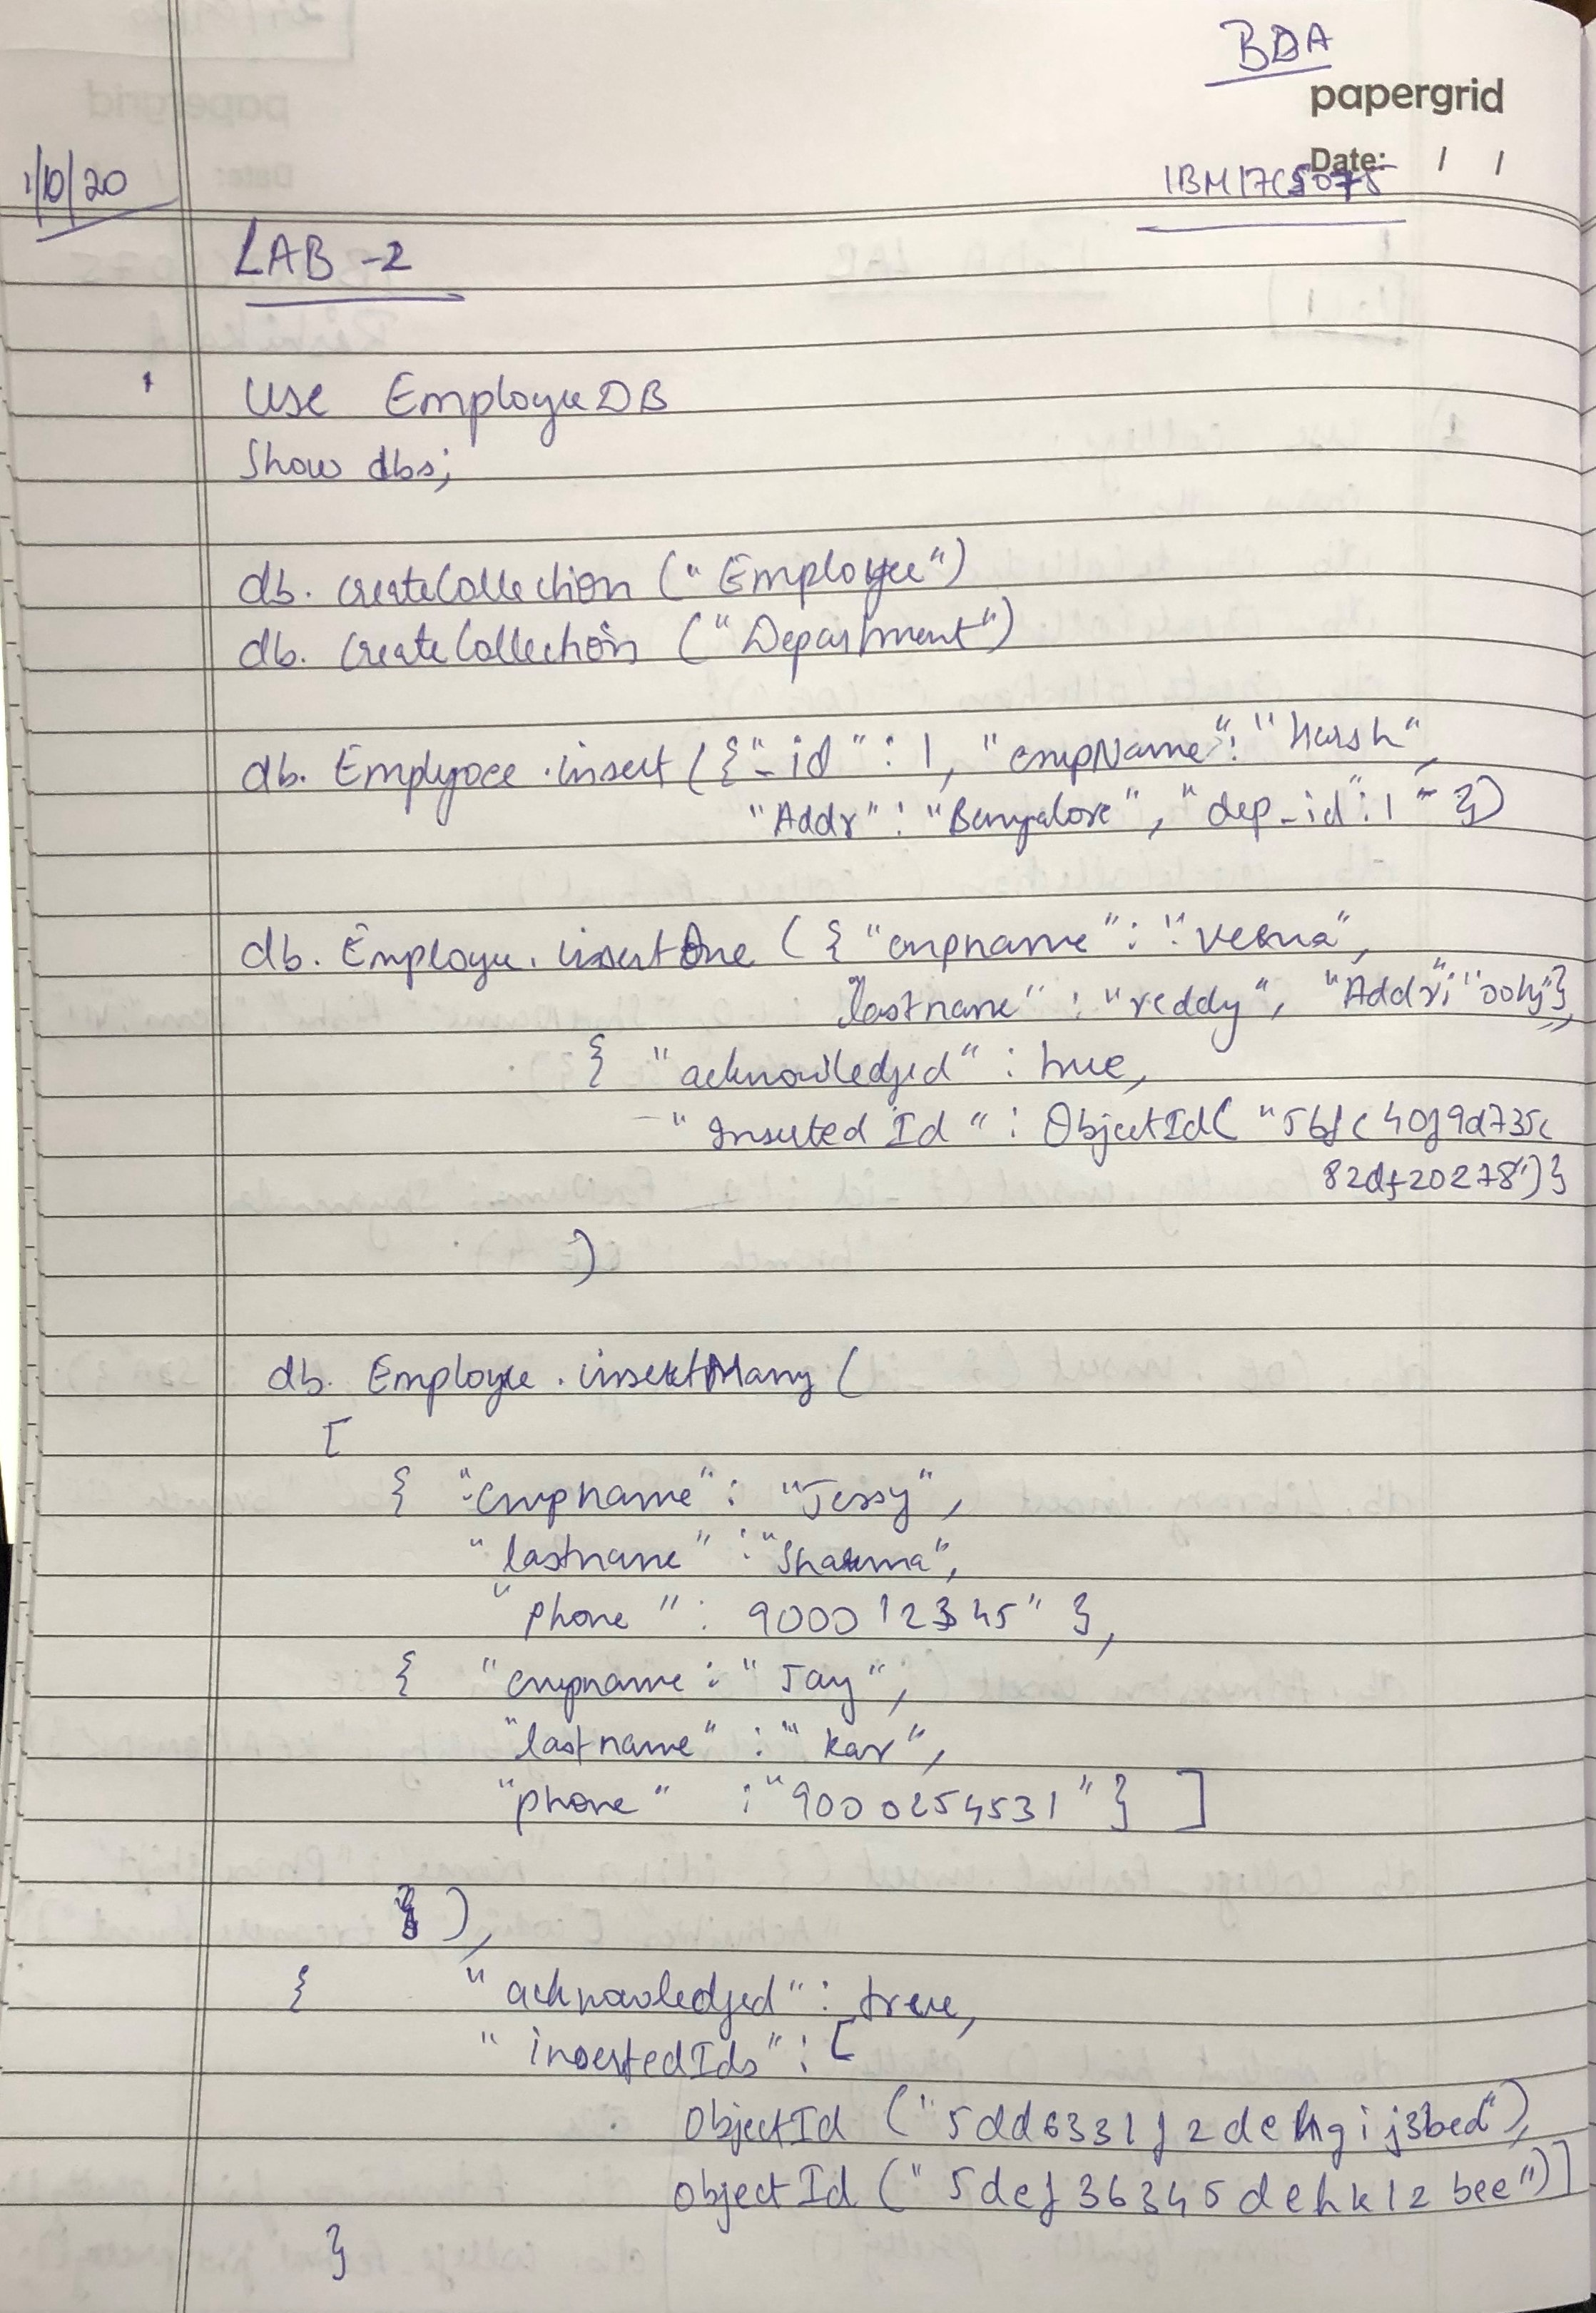 BDA
papergrid
Date: / /
1/10/20
1BM17CS075
LAB -2
Use EmployeeDB
Show dbs;
db. createCollection ("Employee")
db. CreateCollection ("Department")
db. Emplyoee .insert ({"_id" : 1, "empName": "Harsh",
"Addr" : "Bangalore", "dep_id": 1 })
db. Employee. insertOne ( { "empname" : "Veena",
lastname" : "reddy", "Addr": "ooty"},
{ "acknowledged" : true,
"Inserted Id" : ObjectId( "5bfc40f9d735c
82df20278")}
)
db. Employee .insertMany (
[
{ "empname" : "Jessy",
"lastname" : "Sharma",
"phone" : 900012345" },
{ "empname : "Jay",
"lastname" : "kar",
"phone" : "9000254531" } ]
),
{ "acknowledged" : true,
"insertedIds" : [
ObjectId ("5dd6331f2dehgij3bed"),
objectId ("5def36345dehkl2bee")]
}